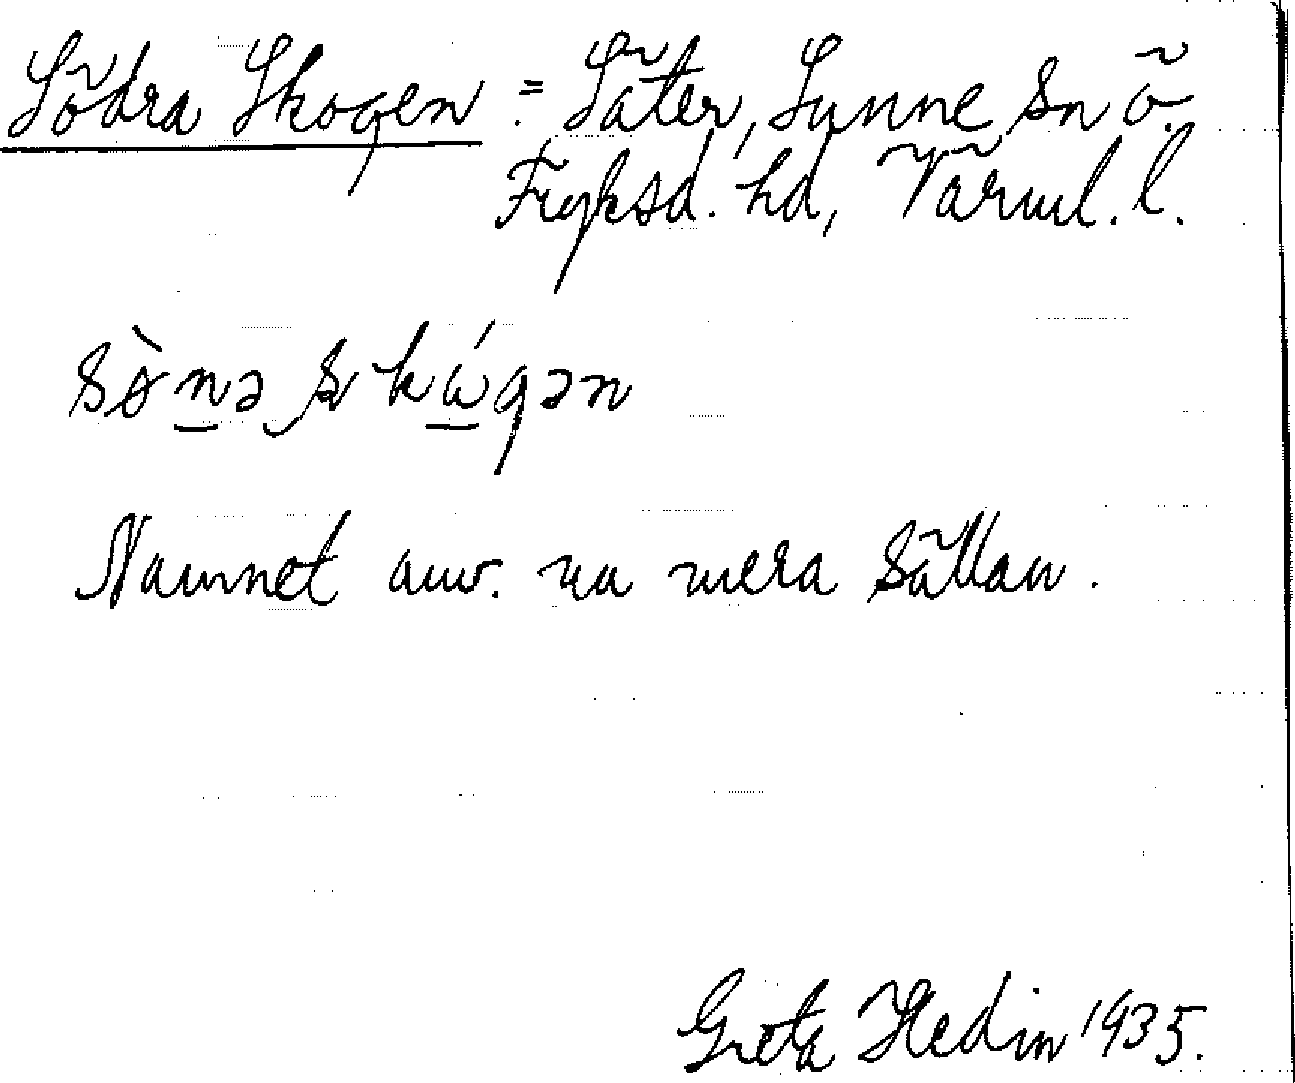 Södra Skogen = Säter, Sunne sn ö.
Fryksd. hd, Värml. l.
sø̀nə skɷ́gən
Namnet anv. nu mera sällan.
Greta Hedin 1935.